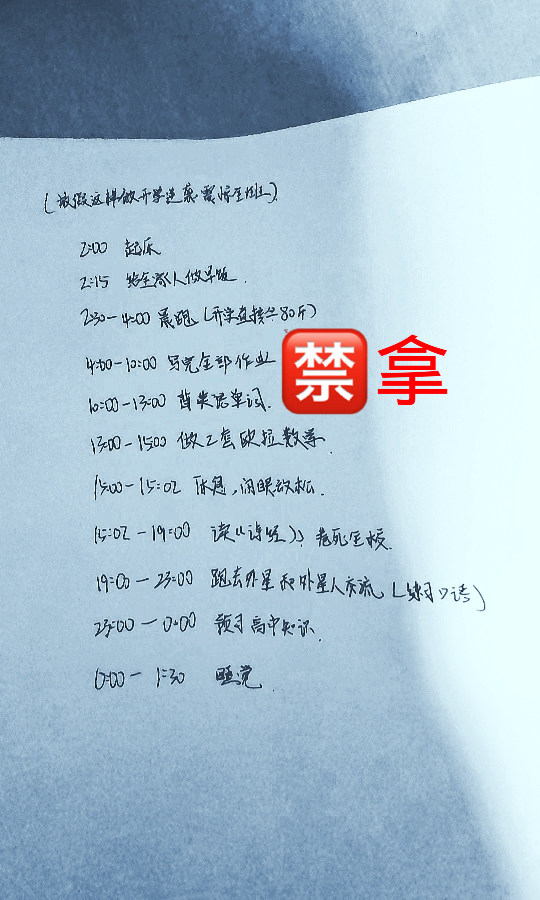 (放假这样做开学逆袭震惊全班)
2:00 起床
2:15 给全家人做早饭.
2:30-4:00 晨跑(开学直接⺌80斤)
4:00-10:00 写完全部作业
禁拿
10:00-13:00 背英语单词.
13:00-15:00 做2套欧拉数学.
15:00-15:02 休息,闭眼放松.
15:02-19:00 读《诗经》,卷死全校.
19:00-23:00 跑去外星和外星人交流(练习口语)
23:00-0:00 预习高中知识.
0:00-1:30 睡觉.